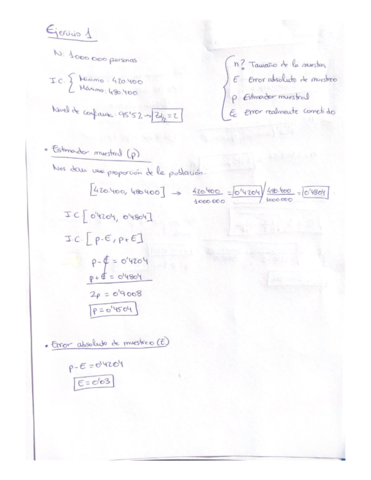 Ejercicio 1
N: 1000.000 personas
I.C. { Mínimo: 420.400
Máximo: 480.400
Nivel de confianza 95'52 → Zα/2 = 2
n? Tamaño de la muestra
E: Error absoluto de muestreo
p: Estimador muestral
Error realmente cometido
• Estimador muestral (p)
Nos dan una proporción de la población.
[420.400, 480.400] → 420.400/1000.000 = 0'4204 / 480.400/1000.000 = 0'4804
I.C [0'4204, 0'4804]
I.C [p-E, p+E]
p-E = 0'4204
p+E = 0'4804
2p = 0'9008
p = 0'4504
• Error absoluto de muestreo (E)
p-E = 0'4204
E = 0'03